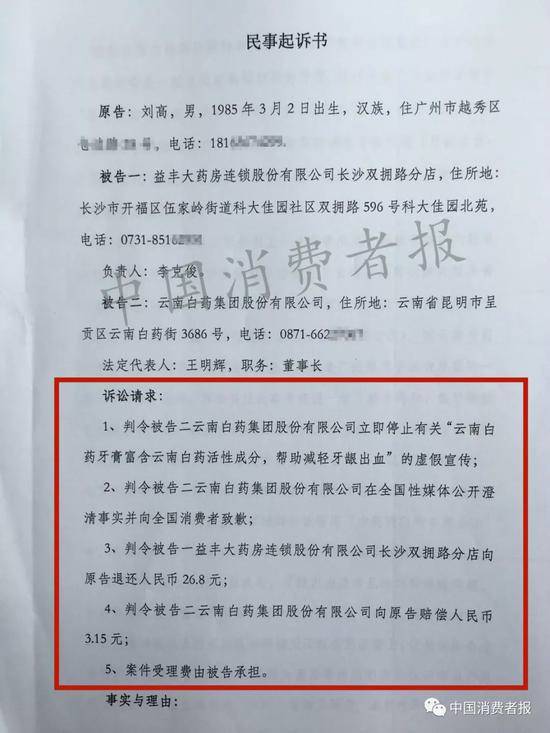 民事起诉书
原告：刘高，男，1985年3月2日出生，汉族，住广州市越秀区
号，电话：181
被告一：益丰大药房连锁股份有限公司长沙双拥路分店，住所地：
长沙市开福区伍家岭街道科大佳园社区双拥路596号科大佳园北苑，
电话：0731-851
负责人：李克俊。
中国消费者报
被告二：云南白药集团股份有限公司，住所地：云南省昆明市呈
贡区云南白药街3686号，电话：0871-662
法定代表人：王明辉，职务：董事长
诉讼请求：
1、判令被告二云南白药集团股份有限公司立即停止有关“云南白
药牙膏富含云南白药活性成分，帮助减轻牙龈出血”的虚假宣传；
2、判令被告二云南白药集团股份有限公司在全国性媒体公开澄
清事实并向全国消费者致歉；
3、判令被告一益丰大药房连锁股份有限公司长沙双拥路分店向
原告退还人民币26.8元；
4、判令被告二云南白药集团股份有限公司向原告赔偿人民币
3.15元；
5、案件受理费由被告承担。
事实与理由：
中国消费者报